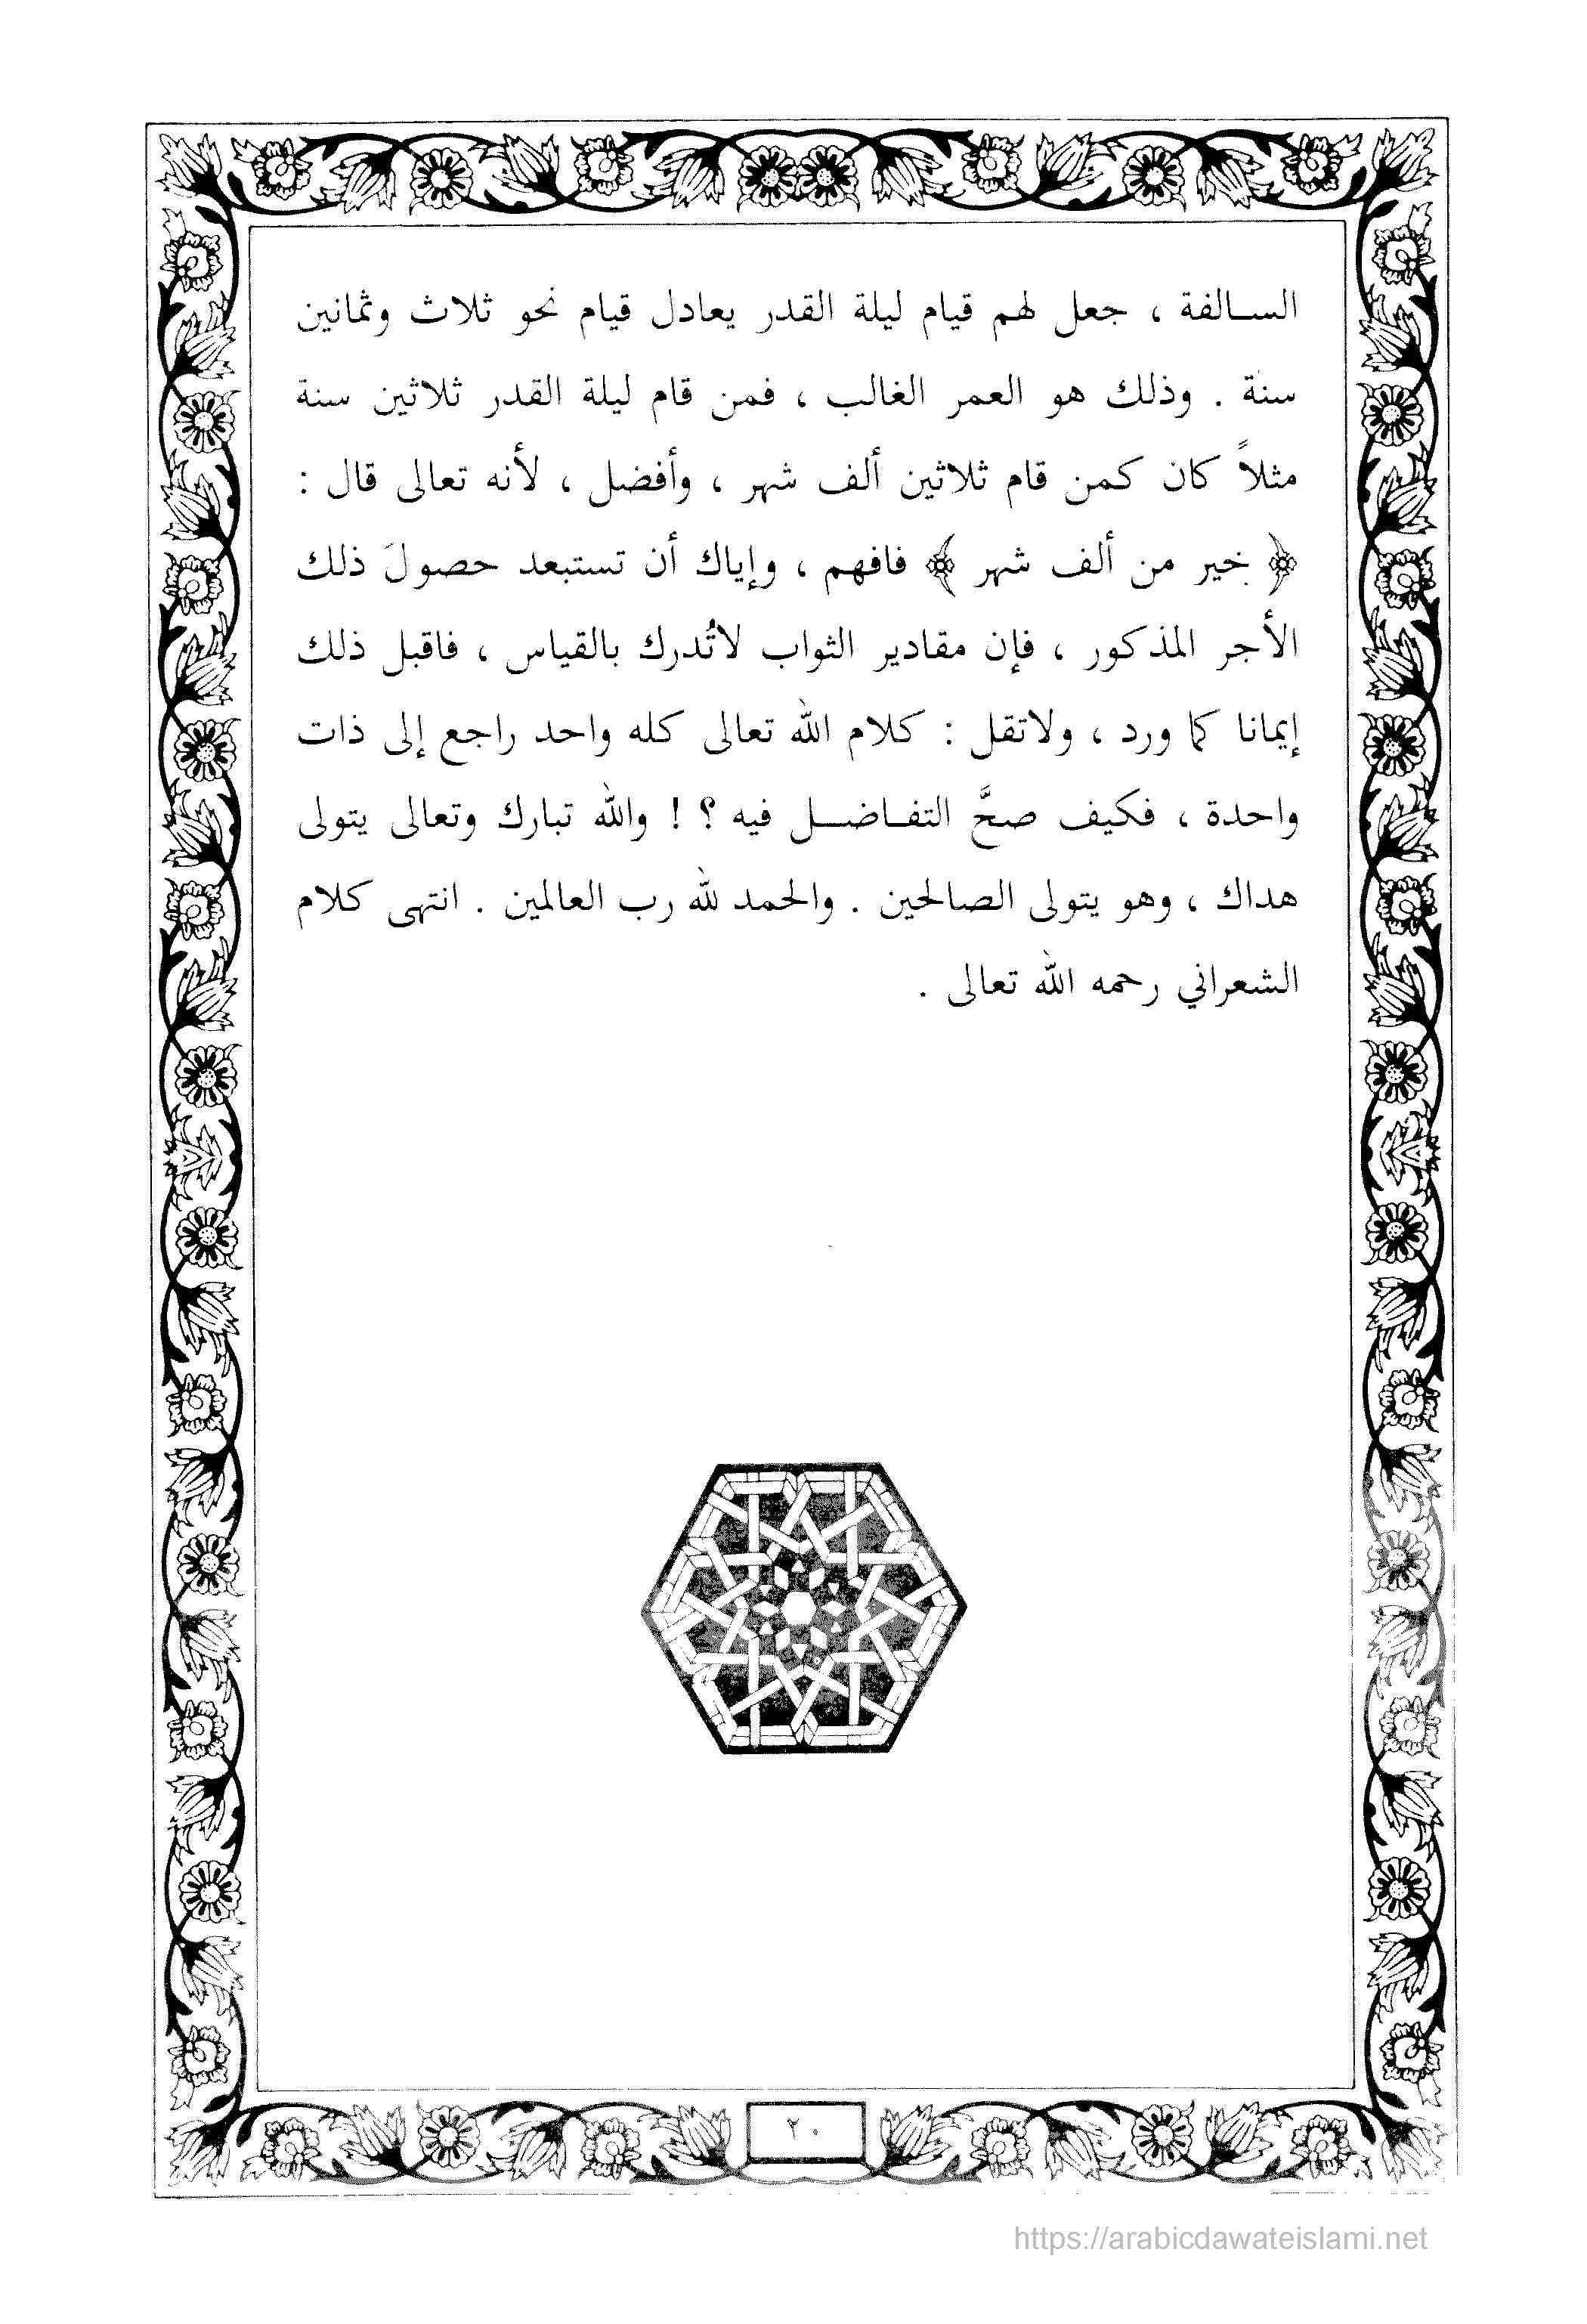 السالفة ، جعل لهم قيام ليلة القدر يعادل قيام نحو ثلاث وثمانين
سنة . وذلك هو العمر الغالب ، فمن قام ليلة القدر ثلاثين سنة
مثلاً كان كمن قام ثلاثين ألف شهر ، وأفضل ، لأنه تعالى قال :
﴿ خير من ألف شهر ﴾ فافهم ، وإياك أن تستبعد حصولَ ذلك
الأجر المذكور ، فإن مقادير الثواب لاتُدرك بالقياس ، فاقبل ذلك
إيمانا كما ورد ، ولاتقل : كلام الله تعالى كله واحد راجع إلى ذات
واحدة ، فكيف صحَّ التفاضل فيه ؟ ! والله تبارك وتعالى يتولى
هداك ، وهو يتولى الصالحين . والحمد لله رب العالمين . انتهى كلام
الشعراني رحمه الله تعالى .
٢٠
https://arabicdawateislami.net